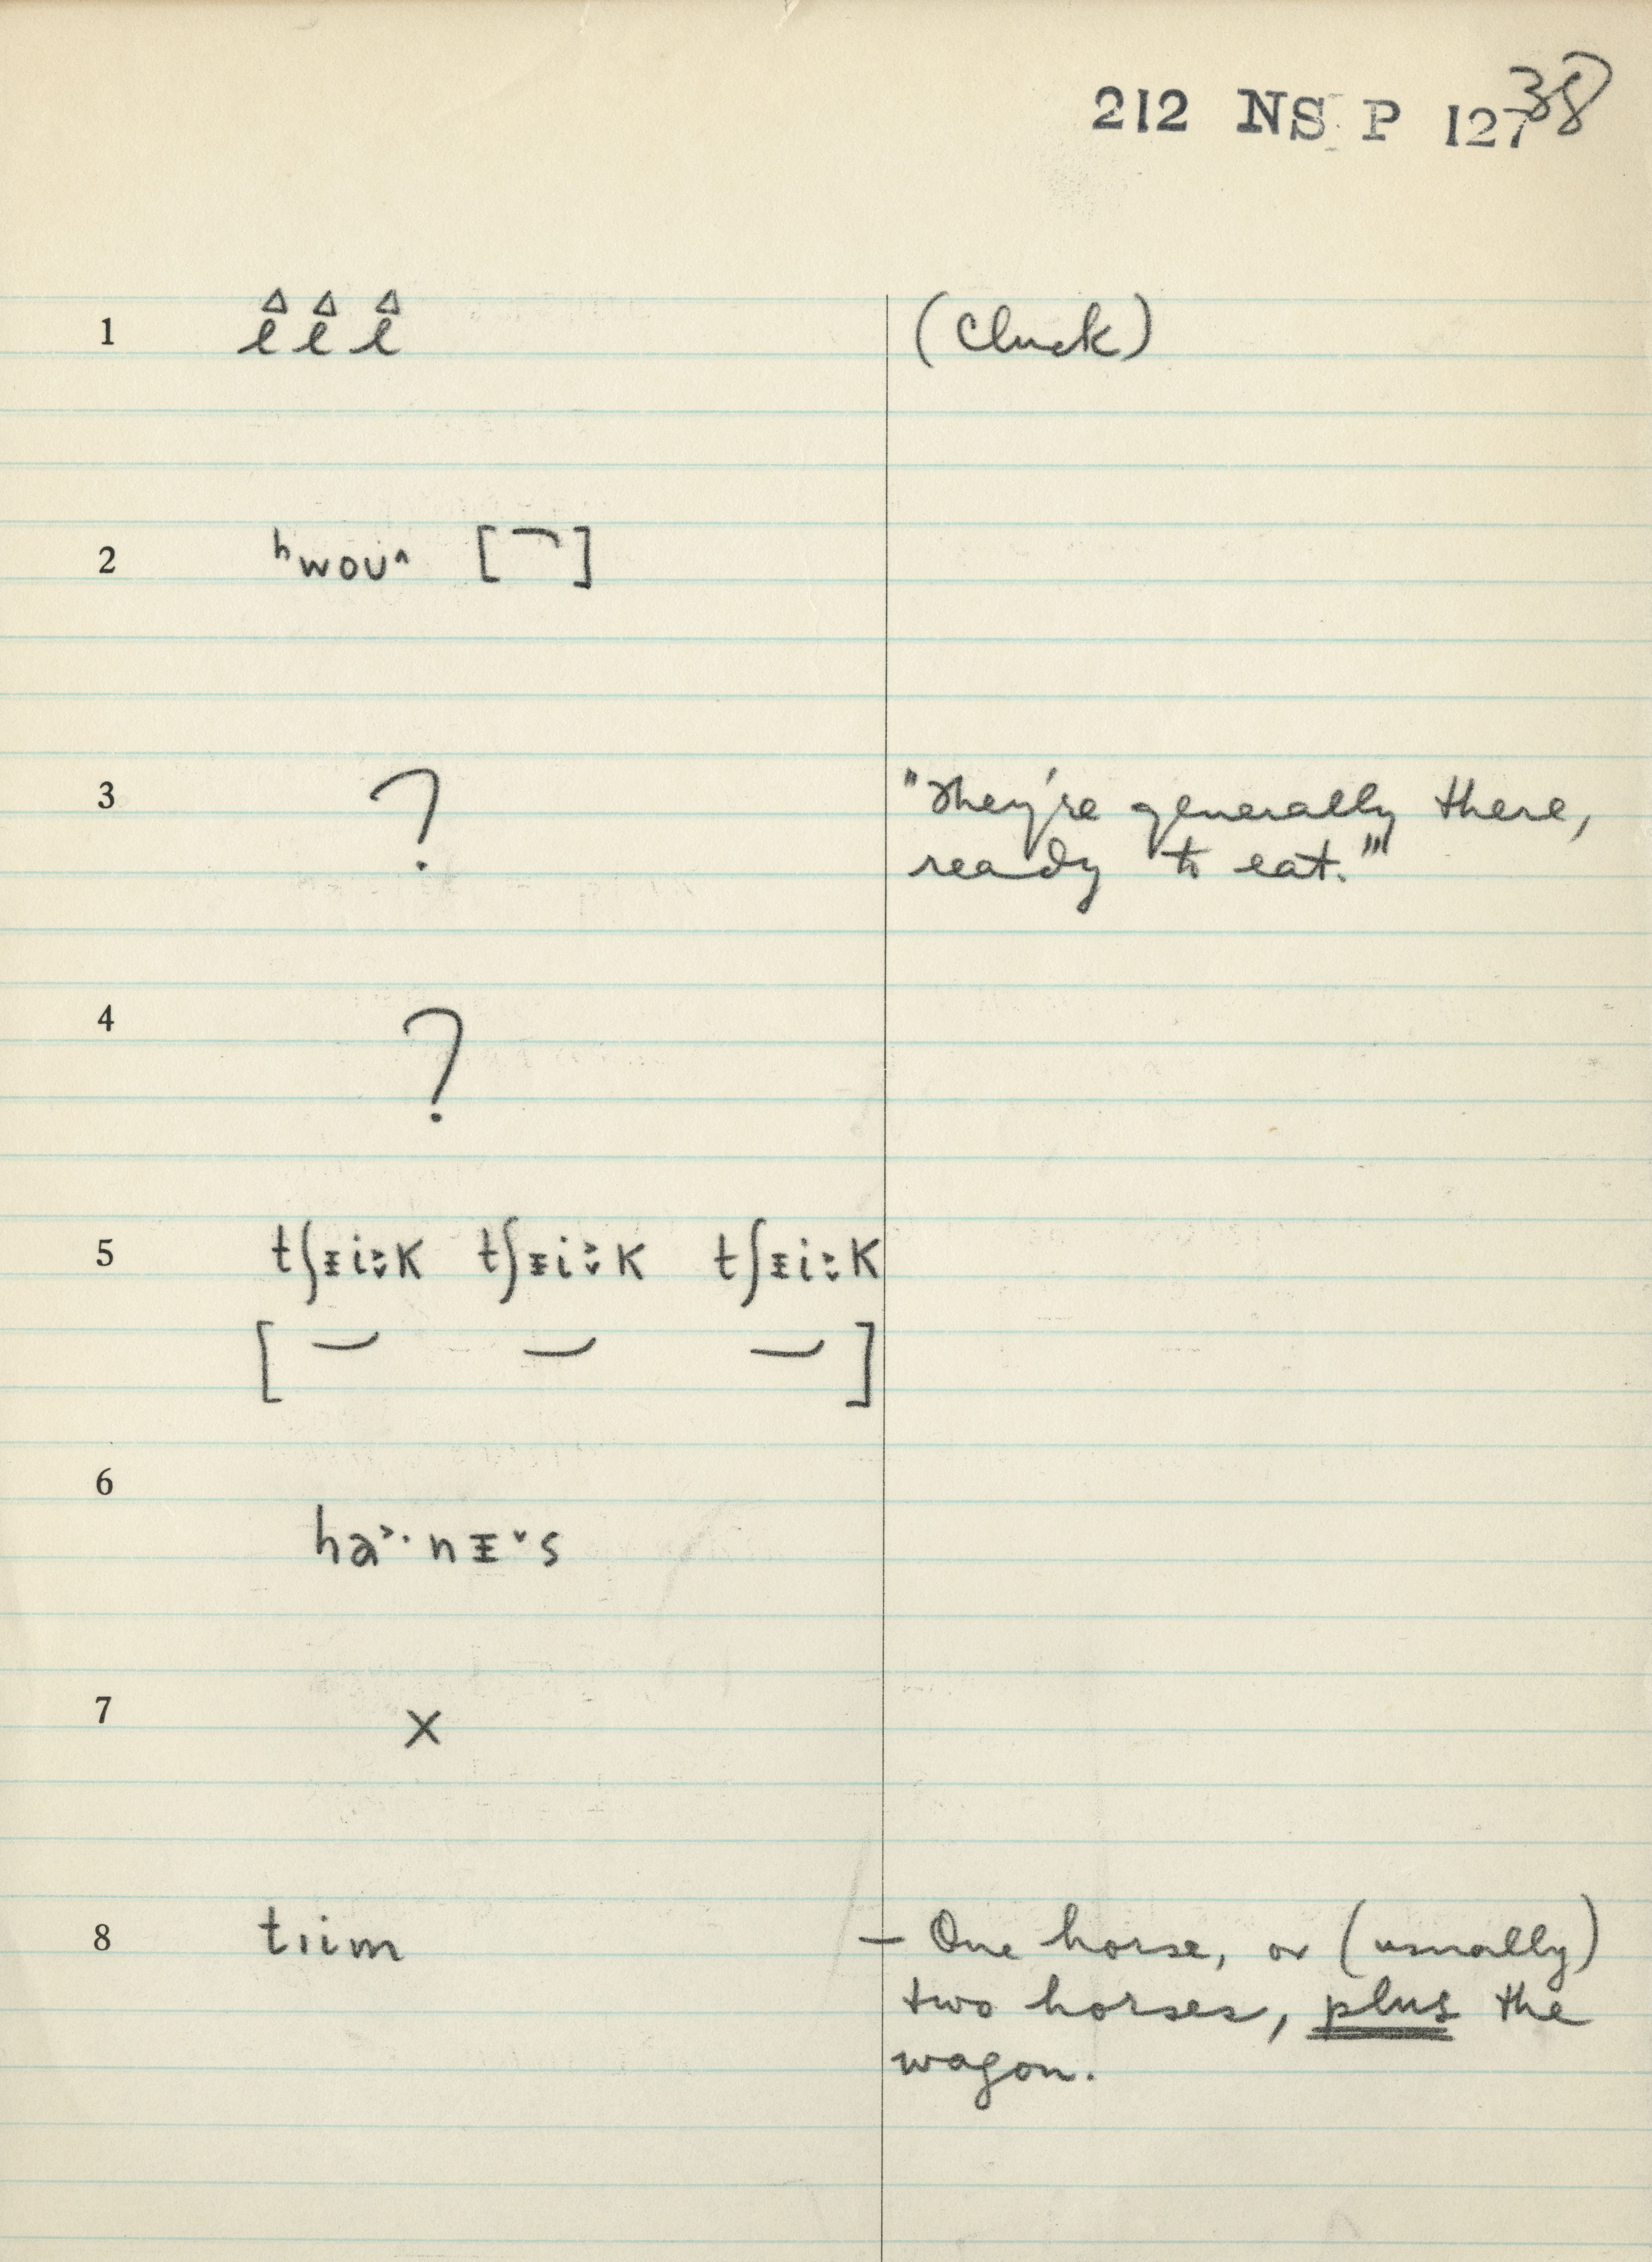 212 NS P 127 38
1 l l l (Cluck)
2 ʰwoʊ^ [ ]
3 ? "They're generally there,
ready to eat."
4 ?
5 tʃᵻiːk tʃᵻiːk tʃᵻiːk
[ ]
6 ha˃·nᵻ˅s
7 x
8 tıim – One horse, or (usually)
two horses, plus the
wagon.